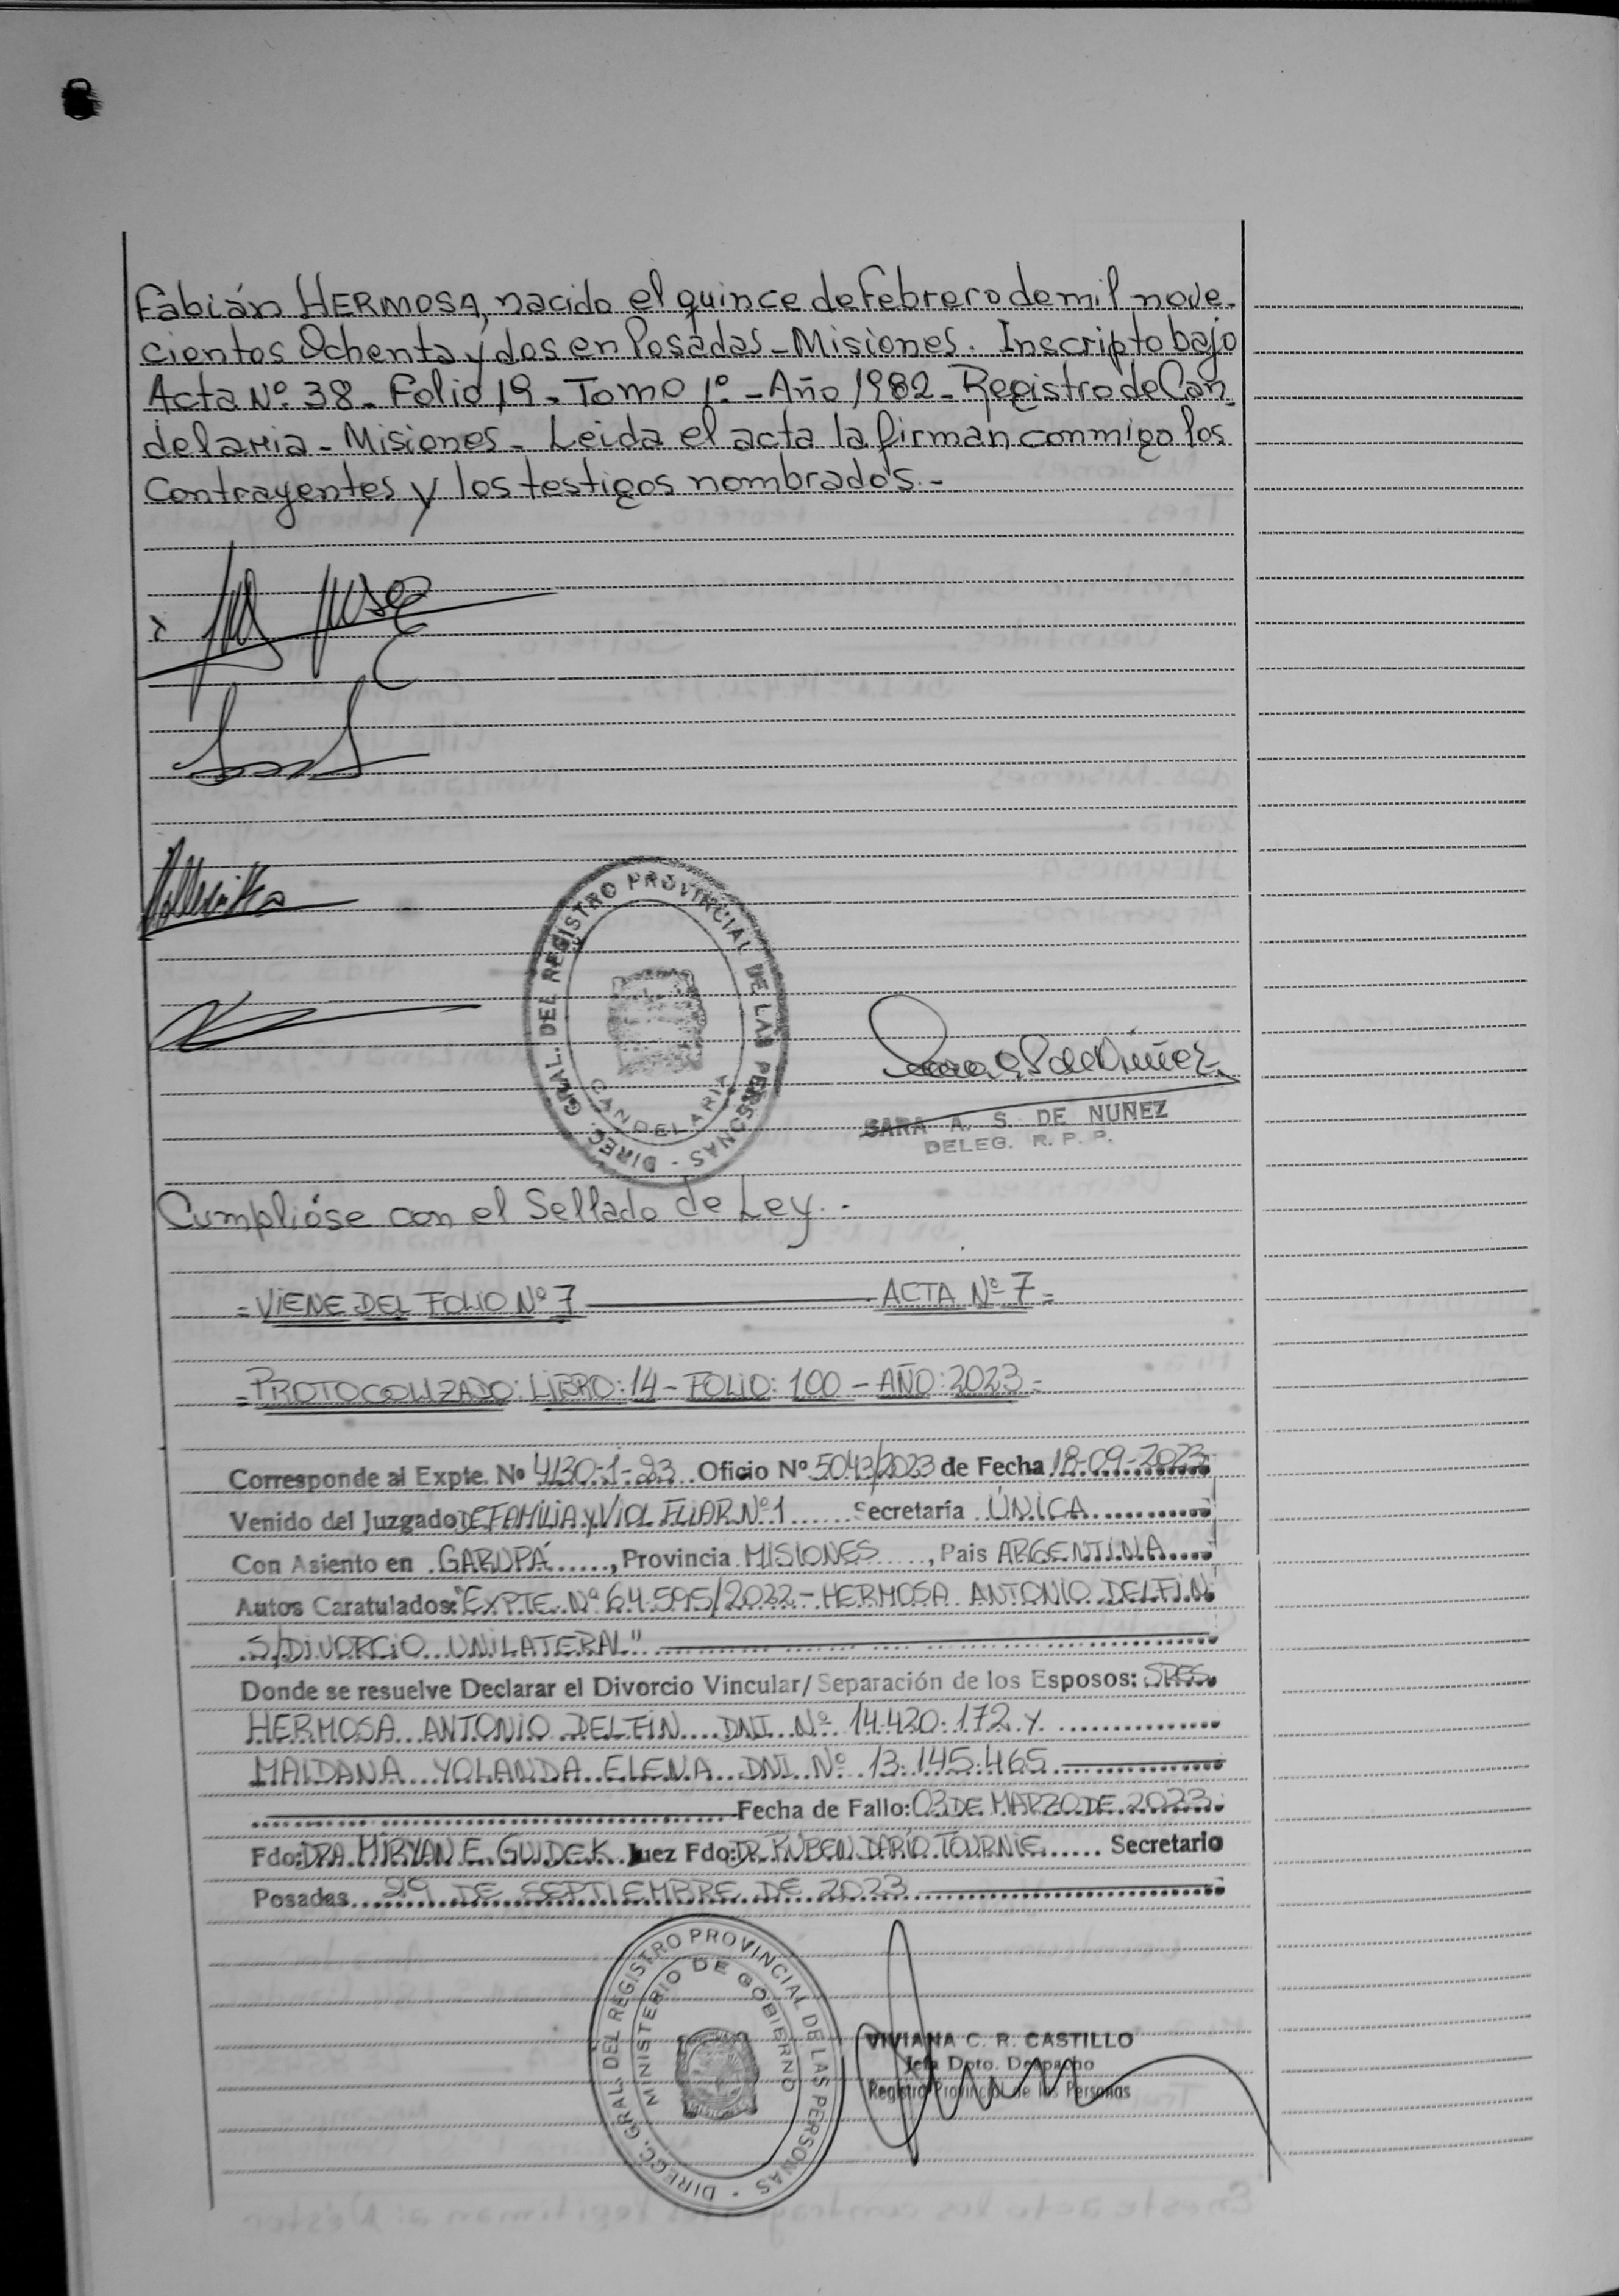 Fabián HERMOSA, nacido el quince de Febrero de mil nove-
cientos Ochenta y dos en Posadas - Misiones. Inscripto bajo
Acta Nº 38 - Folio 19 - Tomo 1º - Año 1982 - Registro de Can-
delaria - Misiones - Leida el acta la firman conmigo los
Contrayentes y los testigos nombrados.-
DIREC. GRAL. DEL REGISTRO PROVINCIAL DE LAS PERSONAS -
CANDELARIA
SARA A. S. DE NUÑEZ
DELEG. R. P. P.
Cumplióse con el Sellado de Ley.-
= VIENE DEL FOLIO Nº 7 ACTA Nº 7 =
= PROTOCOLIZADO: LIBRO: 14 - FOLIO: 100 - AÑO: 2023 =
Corresponde al Expte. Nº 4130-1-23 Oficio Nº 5043/2023 de Fecha 18-09-2023
Venido del Juzgado DE FAMILIA Y VIOL FLIAR Nº 1 Secretaría ÚNICA
Con Asiento en GARUPÁ, Provincia MISIONES, Pais ARGENTINA
Autos Caratulados: "EXPTE. Nº 64.595/2022 - HERMOSA ANTONIO DELFIN
S/DIVORCIO UNILATERAL"
Donde se resuelve Declarar el Divorcio Vincular/Separación de los Esposos: SRES.
HERMOSA ANTONIO DELFIN DNI Nº 14.420.172 Y
MAIDANA YOLANDA ELENA DNI Nº 13.145.465
Fecha de Fallo: 03 DE MARZO DE 2023
Fdo: DRA. MIRYAN E. GUIDEK Juez Fdo: DR. RUBEN DARIO TOURNIE Secretario
Posadas 29 DE SEPTIEMBRE DE 2023
DIRECC. GRAL. DEL REGISTRO PROVINCIAL DE LAS PERSONAS -
MINISTERIO DE GOBIERNO
VIVIANA C. R. CASTILLO
Jefa Dpto. Despacho
Registro Provincial de las Personas